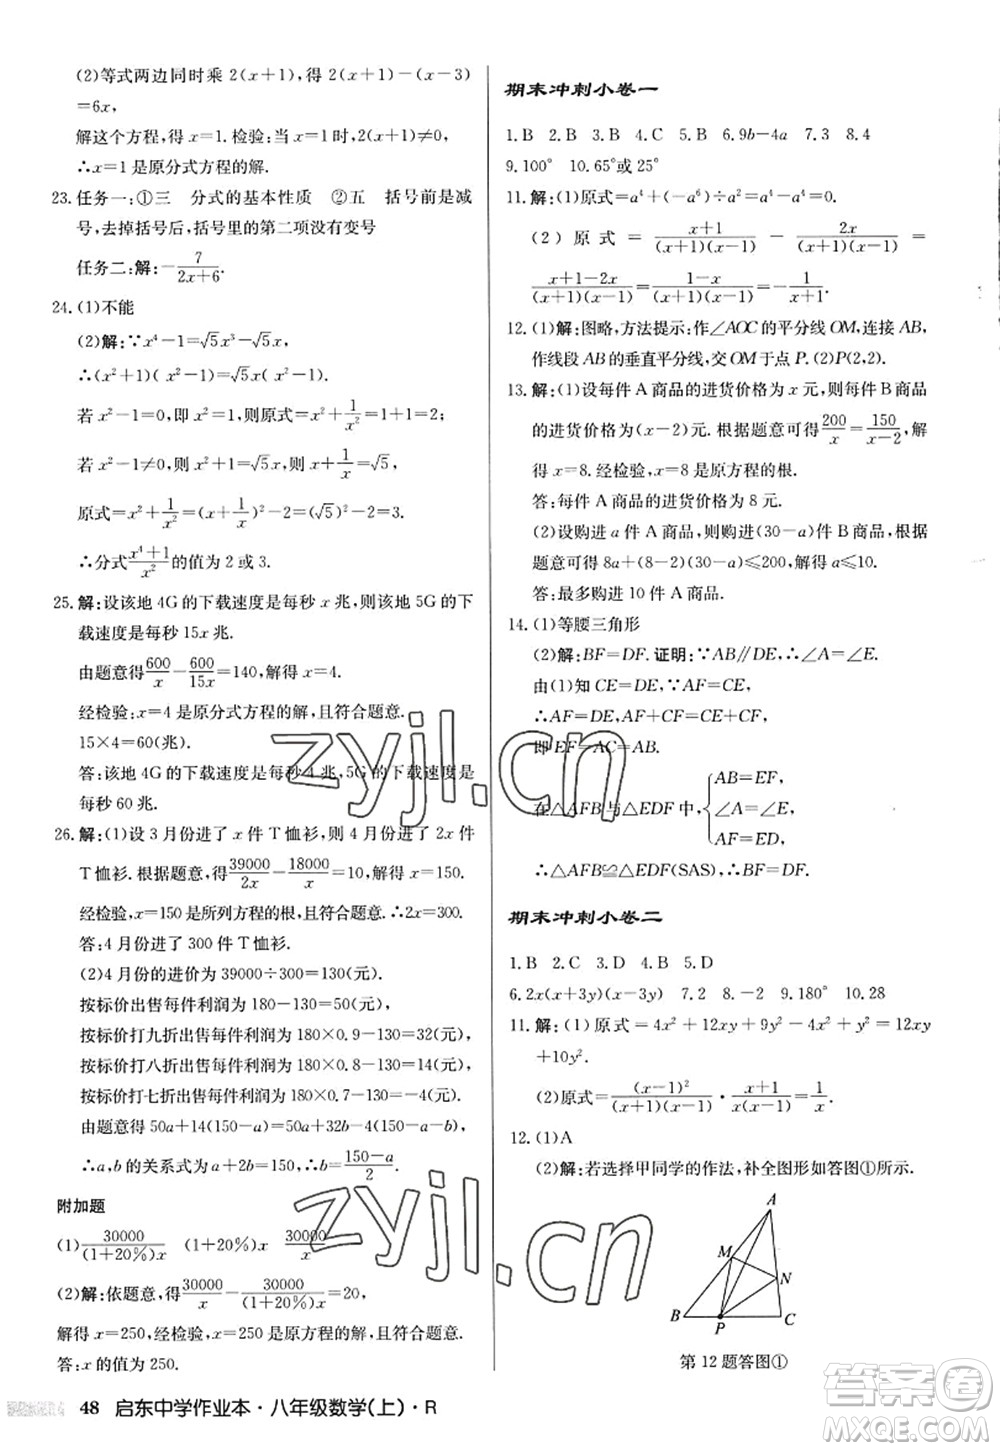 (2)等式两边同时乘 2(x+1),得 2(x+1)-(x-3)
=6x,
解这个方程,得 x=1.检验:当 x=1 时,2(x+1)≠0,
∴x=1是原分式方程的解.
23. 任务一:①三　分式的基本性质　②五　括号前是减
号,去掉括号后,括号里的第二项没有变号
任务二:解:-7/(2x+6).
24. (1)不能
(2)解:∵x⁴-1=√5x³-√5x,
∴(x²+1)(x²-1)=√5x(x²-1).
若 x²-1=0,即 x²=1,则原式=x²+1/x²=1+1=2;
若 x²-1≠0,则 x²+1=√5x,则 x+1/x=√5,
原式=x²+1/x²=(x+1/x)²-2=(√5)²-2=3.
∴分式(x⁴+1)/x²的值为 2 或 3.
25. 解:设该地 4G 的下载速度是每秒 x 兆,则该地 5G 的下
载速度是每秒 15x 兆.
由题意得600/x-600/15x=140,解得 x=4.
经检验:x=4是原分式方程的解,且符合题意.
15×4=60(兆).
答:该地 4G 的下载速度是每秒 4 兆,5G 的下载速度是
每秒 60 兆.
26. 解:(1)设 3 月份进了 x 件 T恤衫,则 4 月份进了 2x 件
T恤衫.根据题意,得39000/2x-18000/x=10,解得 x=150.
经检验,x=150 是所列方程的根,且符合题意.∴2x=300.
答:4 月份进了 300 件 T 恤衫.
(2)4月份的进价为 39000÷300=130(元),
按标价出售每件利润为 180-130=50(元),
按标价打九折出售每件利润为 180×0.9-130=32(元),
按标价打八折出售每件利润为 180×0.8-130=14(元),
按标价打七折出售每件利润为 180×0.7-130=-4(元),
由题意,得 50a+14(150-a)+32b-4(150-a-b)=2700,
∴a,b 的关系式为 a+2b=150,∴b=(150-a)/2.
附加题
(1)30000/(1+20%)x　(1+20%)x　30000/x
(2)解:依题意,得30000/x-30000/(1+20%)x=20,
解得 x=250,经检验,x=250 是原方程的解,且符合题意.
答:x 的值为 250.
48　启东中学作业本·八年级数学(上)·R
期末冲刺小卷一
1.B　2.B　3.B　4.C　5.B　6.9b-4a　7.3　8.4
9.100°　10.65°或 25°
11. 解:(1)原式=a⁴+(-a⁶)÷a²=a⁴-a⁴=0.
(2)原式=(x+1)/((x+1)(x-1))-2x/((x+1)(x-1))=
(x+1-2x)/((x+1)(x-1))=-(x-1)/((x+1)(x-1))=-1/(x+1).
12. (1)解:图略,方法提示:作∠AOC的平分线OM,连接 AB,
作线段AB的垂直平分线,交OM于点P. (2)P(2,2).
13. 解:(1)设每件 A 商品的进货价格为 x 元,则每件 B 商品
的进货价格为(x-2)元. 根据题意可得200/x=150/(x-2),解
得 x=8.经检验,x=8 是原方程的根.
答:每件 A 商品的进货价格为 8 元.
(2)设购进 a 件 A 商品,则购进(30-a)件 B 商品.根据
题意可得 8a+(8-2)(30-a)≤200,解得 a≤10.
答:最多购进 10 件 A 商品.
14. (1)等腰三角形
(2)解:BF=DF.证明:∵AB∥DE,∴∠A=∠E.
由(1)知 CE=DE,∵AF=CE,
∴AF=DE,AF+CF=CE+CF,
即 EF=AC=AB.
在△AFB与△EDF 中,{AB=EF,
∠A=∠E,
AF=ED,
∴△AFB≌△EDF(SAS),∴BF=DF.
期末冲刺小卷二
1.B　2.C　3.D　4.B　5.D
6.2x(x+3y)(x-3y)　7.2　8.-2　9.180°　10.28
11. 解:(1)原式=4x²+12xy+9y²-4x²+y²=12xy
+10y².
(2)原式=(x-1)²/((x+1)(x-1))·(x+1)/(x(x-1))=1/x.
12. (1)A
(2)解:若选择甲同学的作法,补全图形如答图①所示.
A
M
N
B
P
C
第 12 题答图①
zyjl.cn
zyjl.cn
答案圈
MXQE.COM